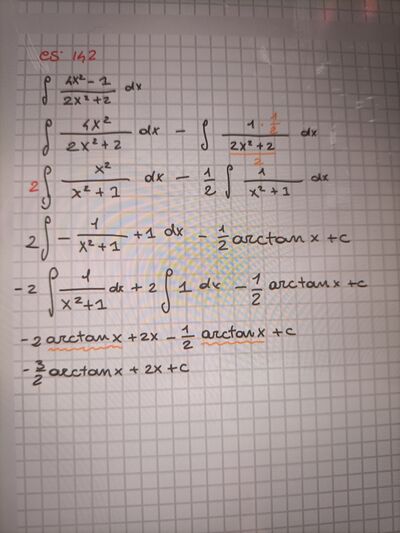 es 142
∫ (4x² - 1)/(2x² + 2) dx
∫ 4x²/(2x² + 2) dx - ∫ (1 · 1/2)/((2x² + 2)/2) dx
2∫ x²/(x² + 1) dx - 1/2 ∫ 1/(x² + 1) dx
2∫ - 1/(x² + 1) + 1 dx - 1/2 arctan x + c
-2 ∫ 1/(x² + 1) dx + 2 ∫ 1 dx - 1/2 arctan x + c
-2 arctan x + 2x - 1/2 arctan x + c
- 3/2 arctan x + 2x + c